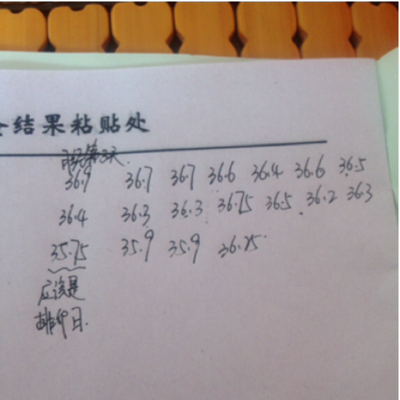 结果粘贴处
月经第3天.
36.9 36.7 36.7 36.6 36.4 36.6 36.5
36.4 36.3 36.3 36.75 36.5 36.2 36.3
35.75 35.9 35.9 36.25
应该是
排卵日.